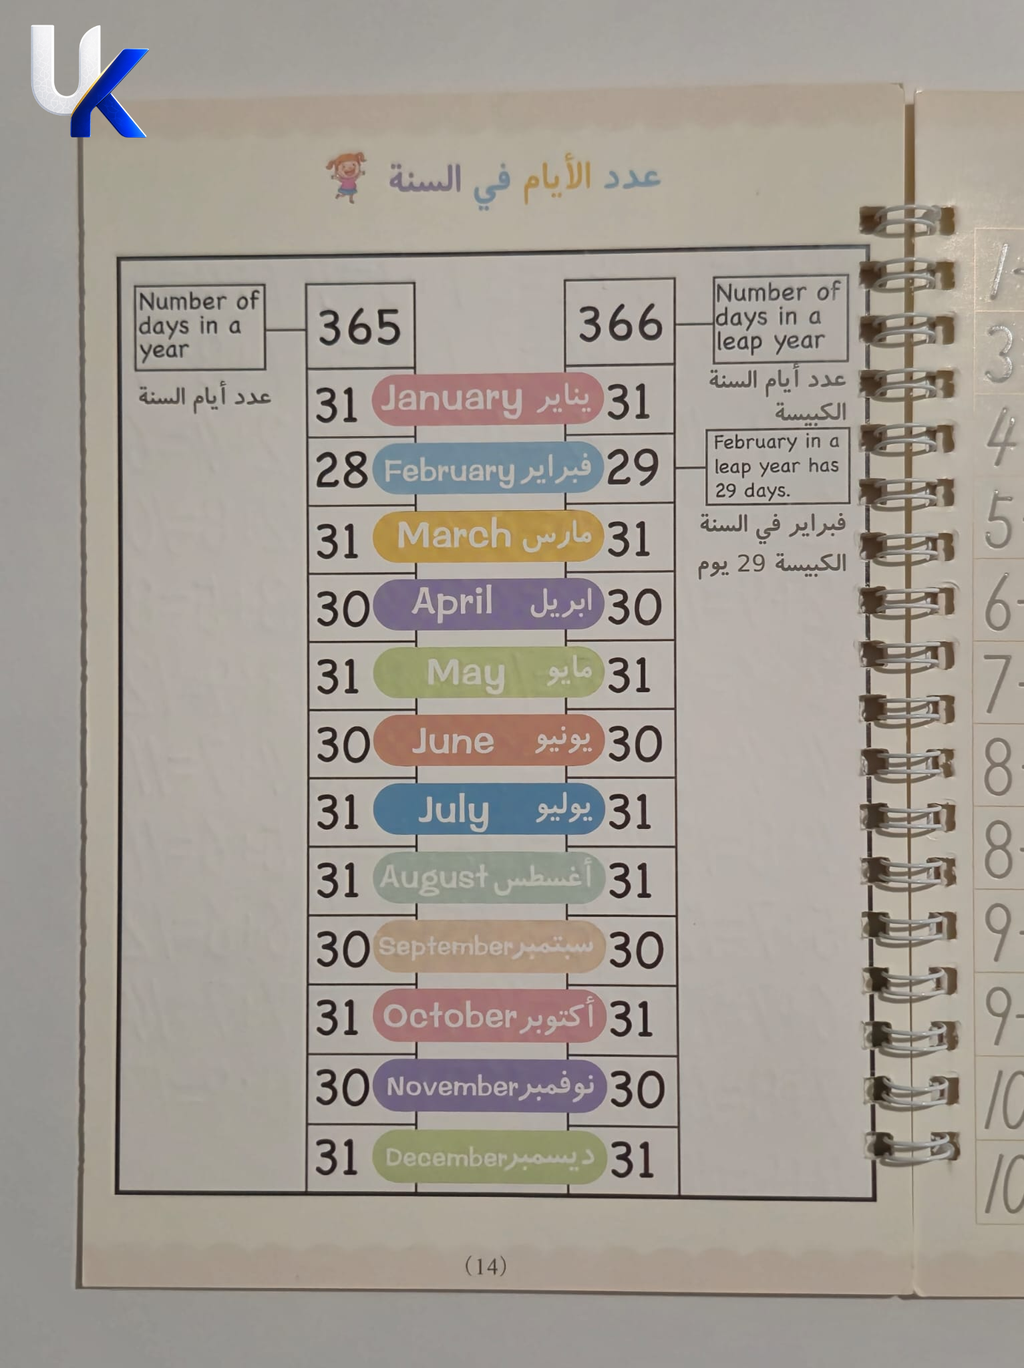 UK
عدد الأيام في السنة
Number of
days in a
year
365
366
Number of
days in a
leap year
عدد أيام السنة
عدد أيام السنة
الكبيسة
31 January يناير 31
28 February فبراير 29
February in a
leap year has
29 days.
فبراير في السنة
الكبيسة 29 يوم
31 March مارس 31
30 April ابريل 30
31 May مايو 31
30 June يونيو 30
31 July يوليو 31
31 August أغسطس 31
30 September سبتمبر 30
31 October أكتوبر 31
30 November نوفمبر 30
31 December ديسمبر 31
(14)
1-
3
4
5
6-
7-
8-
8-
9-
9-
10
10